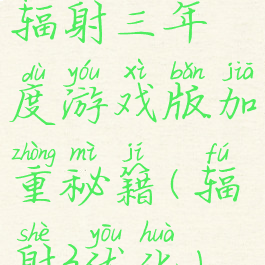 辐射三年
dù yóu xì bǎn jiā
度游戏版加
zhòng mì jí fú
重秘籍(辐
shè yōu huà
射3优化)